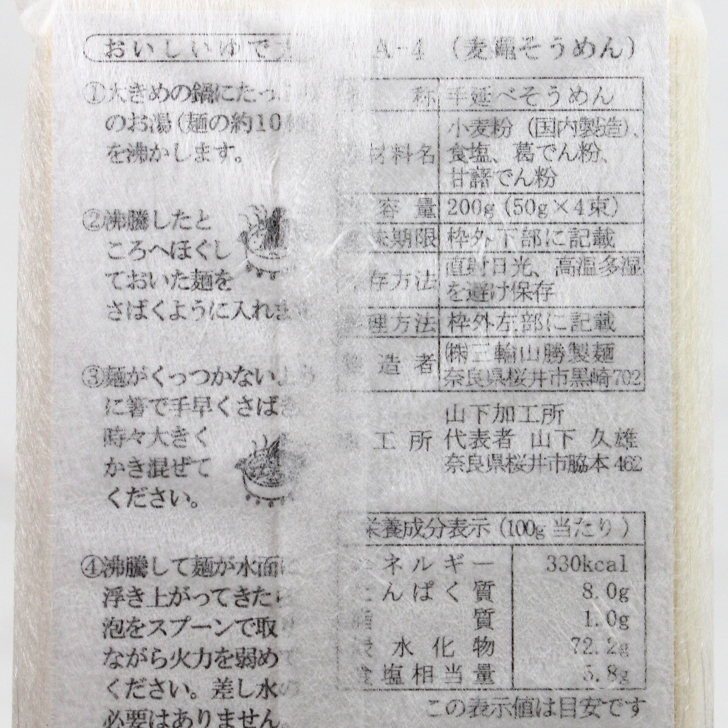 おいしいゆで
①大きめの鍋にたっ
のお湯(麺の約10
を沸かします。
②沸騰したと
ころへほぐし
ておいた麺を
さばくように入れま
③麺がくっつかない
に箸で手早くさば
時々大きく
かき混ぜて
ください。
④沸騰して麺が水面に
浮き上がってきたら
泡をスプーンで取
ながら火力を弱めて
ください。差し水の
必要はありません。
A-4 (麦縄そうめん)
称 手延べそうめん
材料名 小麦粉(国内製造)、
食塩、葛でん粉、
甘藷でん粉
容量 200g(50g×4束)
味期限 枠外下部に記載
存方法 直射日光、高温多湿
を避け保存
理方法 枠外左部に記載
造者 ㈱三輪山勝製麺
奈良県桜井市黒崎702
山下加工所
工所 代表者 山下 久雄
奈良県桜井市脇本462
栄養成分表示(100g当たり)
ネルギー 330kcal
んぱく質 8.0g
質 1.0g
水化物 72.2g
塩相当量 5.8g
この表示値は目安です